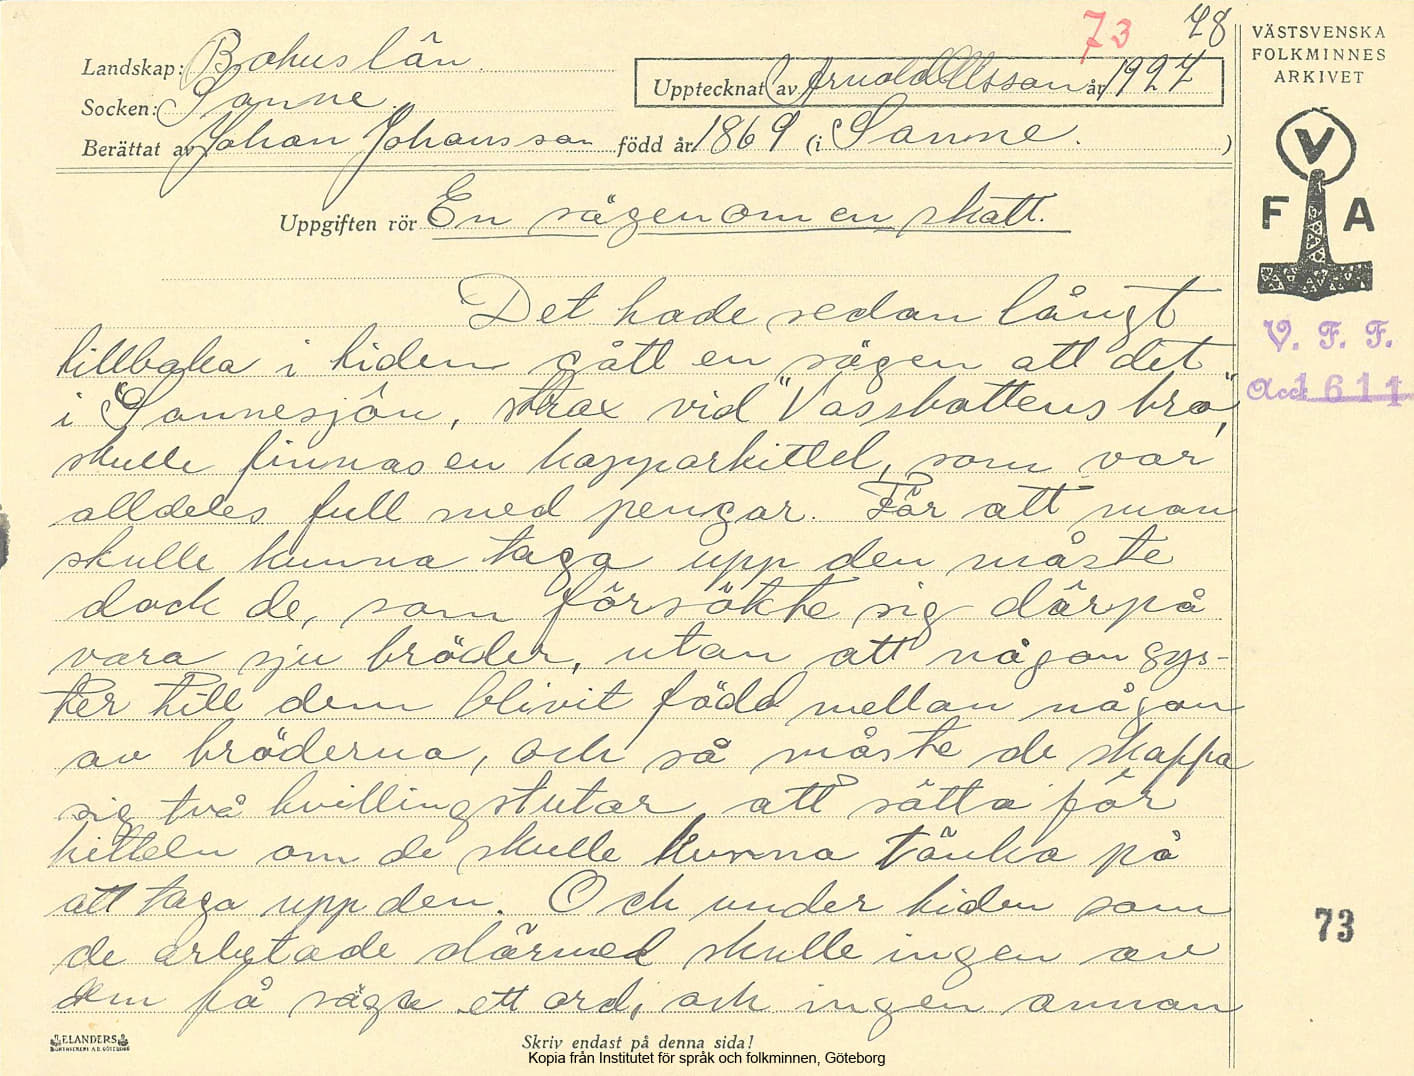 73 78
Landskap: Bohuslän.
Socken: Sanne.
Berättat av Johan Johansson född år 1869 (i Sanne. )
Upptecknat av Arnold Olsson år 1927
VÄSTSVENSKA
FOLKMINNES
ARKIVET
V
F A
V. F. F.
Acc 1611
Uppgiften rör En sägen om en skatt.
Det hade sedan långt
tillbaka i tiden gått en sägen att det
i "Sannesjön, strax vid "Vassbottens bro",
skulle finnas en kopparkittel, som var
alldeles full med pengar. För att man
skulle kunna taga upp den måste
dock de, som försökte sig därpå
vara sju bröder, utan att någon sys-
ter till dem blivit född mellan någon
av bröderna, och så måste de skaffa
sig två tvillingstutar att sätta för
kitteln om de skulle kunna tänka på
att taga upp den. Och under tiden som
de arbetade därmed skulle ingen av
dem få säga ett ord, och ingen annan
73
ELANDERS
BOKTRYCKERI A.B. GÖTEBORG
Skriv endast på denna sida!
Kopia från Institutet för språk och folkminnen, Göteborg